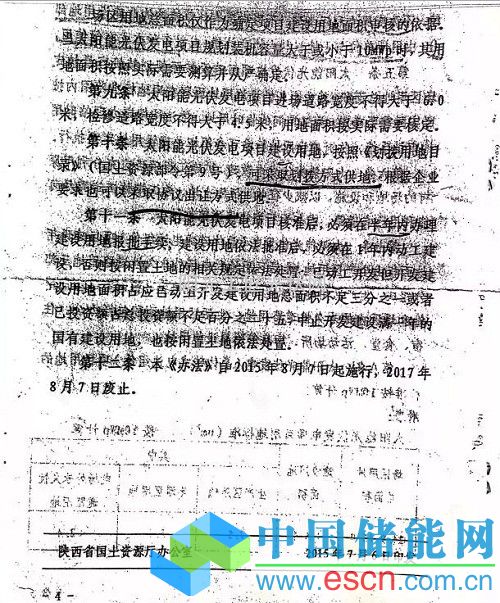 场区用地总面积仅作为篇定项目建设用地面积审核的依据。
且太阳能光伏发电项目规划装机容量大于或小于10MWp时，其用
地面积按照实际需要测算并从严确定。
第九条 太阳能光伏发电项目进场道路宽度不得大于6.0
米，检修道路宽度不得大于4.5米，用地面积按实际需要核定。
第十条 太阳能光伏发电项目建设用地，按照《划拨用地目
录》（国土资源部令第9号）可采取划拨方式供地，根据企业
要求也可以采取协议出让方式供地。
第十一条 太阳能光伏发电项目核准后，必须在半年内办理
建设用地报批手续；建设用地依法批准后，必须在1年内动工建
设，否则按闲置土地的相关规定依法处置。已动工开发但开发建
设用地面积占应动工开发建设用地总面积不足三分之一或者
已投资额占总投资额不足百分之二十五，中止开发建设满一年的
国有建设用地，也按闲置土地依法处置。
第十二条 本《办法》自2015年8月7日起施行，2017年
8月7日废止。
陕西省国土资源厅办公室 2015年7月6日印发
4
中国储能网
www.escn.com.cn